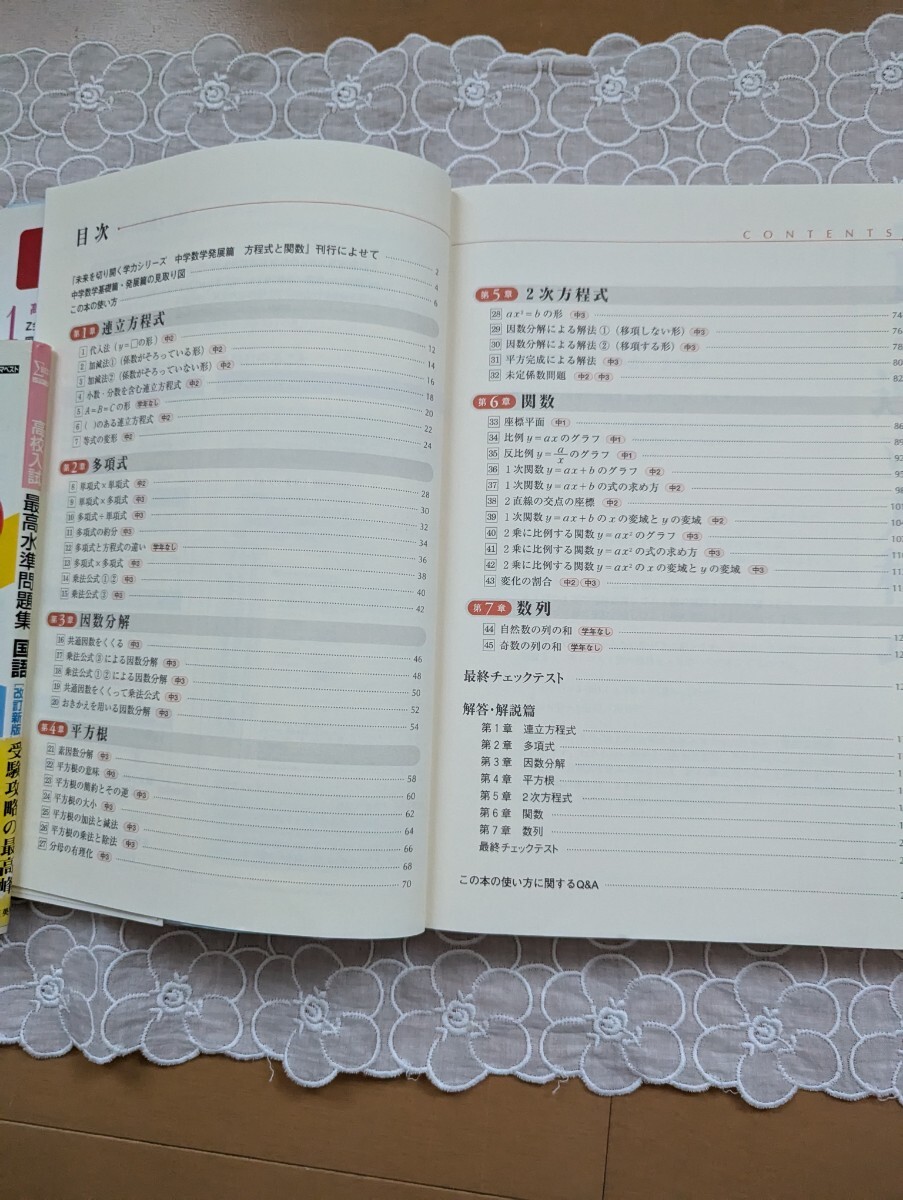 目次
『未来を切り開く学力シリーズ 中学数学発展篇 方程式と関数』刊行によせて 2
中学数学基礎篇・発展篇の見取り図 4
この本の使い方 6
第1章 連立方程式
1 代入法（y＝□の形） 中2 12
2 加減法①（係数がそろっている形） 中2 14
3 加減法②（係数がそろっていない形） 中2 16
4 小数・分数を含む連立方程式 中2 18
5 A＝B＝Cの形 学年なし 20
6 （ ）のある連立方程式 中2 22
7 等式の変形 中2 24
第2章 多項式
8 単項式×単項式 中2 28
9 単項式×多項式 中3 30
10 多項式÷単項式 中3 32
11 多項式の約分 中3 34
12 多項式と方程式の違い 学年なし 36
13 多項式×多項式 中3 38
14 乗法公式①② 中3 40
15 乗法公式③ 中3 42
第3章 因数分解
16 共通因数をくくる 中3 46
17 乗法公式③による因数分解 中3 48
18 乗法公式①②による因数分解 中3 50
19 共通因数をくくって乗法公式 中3 52
20 おきかえを用いる因数分解 中3 54
第4章 平方根
21 素因数分解 中3 58
22 平方根の意味 中3 60
23 平方根の簡約とその逆 中3 62
24 平方根の大小 中3 64
25 平方根の加法と減法 中3 66
26 平方根の乗法と除法 中3 68
27 分母の有理化 中3 70
CONTENTS
第5章 2次方程式
28 ax²＝bの形 中3 74
29 因数分解による解法①（移項しない形） 中3 76
30 因数分解による解法②（移項する形） 中3 78
31 平方完成による解法 中3 80
32 未定係数問題 中2 中3 82
第6章 関数
33 座標平面 中1 86
34 比例y＝axのグラフ 中1 89
35 反比例y＝a/xのグラフ 中1
36 1次関数y＝ax＋bのグラフ 中2
37 1次関数y＝ax＋bの式の求め方 中2
38 2直線の交点の座標 中2
39 1次関数y＝ax＋bのxの変域とyの変域 中2
40 2乗に比例する関数y＝ax²のグラフ 中3
41 2乗に比例する関数y＝ax²の式の求め方 中3
42 2乗に比例する関数y＝ax²のxの変域とyの変域 中3
43 変化の割合 中2 中3
第7章 数列
44 自然数の列の和 学年なし
45 奇数の列の和 学年なし
最終チェックテスト
解答・解説篇
第1章 連立方程式
第2章 多項式
第3章 因数分解
第4章 平方根
第5章 2次方程式
第6章 関数
第7章 数列
最終チェックテスト
この本の使い方に関するQ&A
高校入試
最高水準問題集 国語
［改訂新版
受験攻略の最高峰